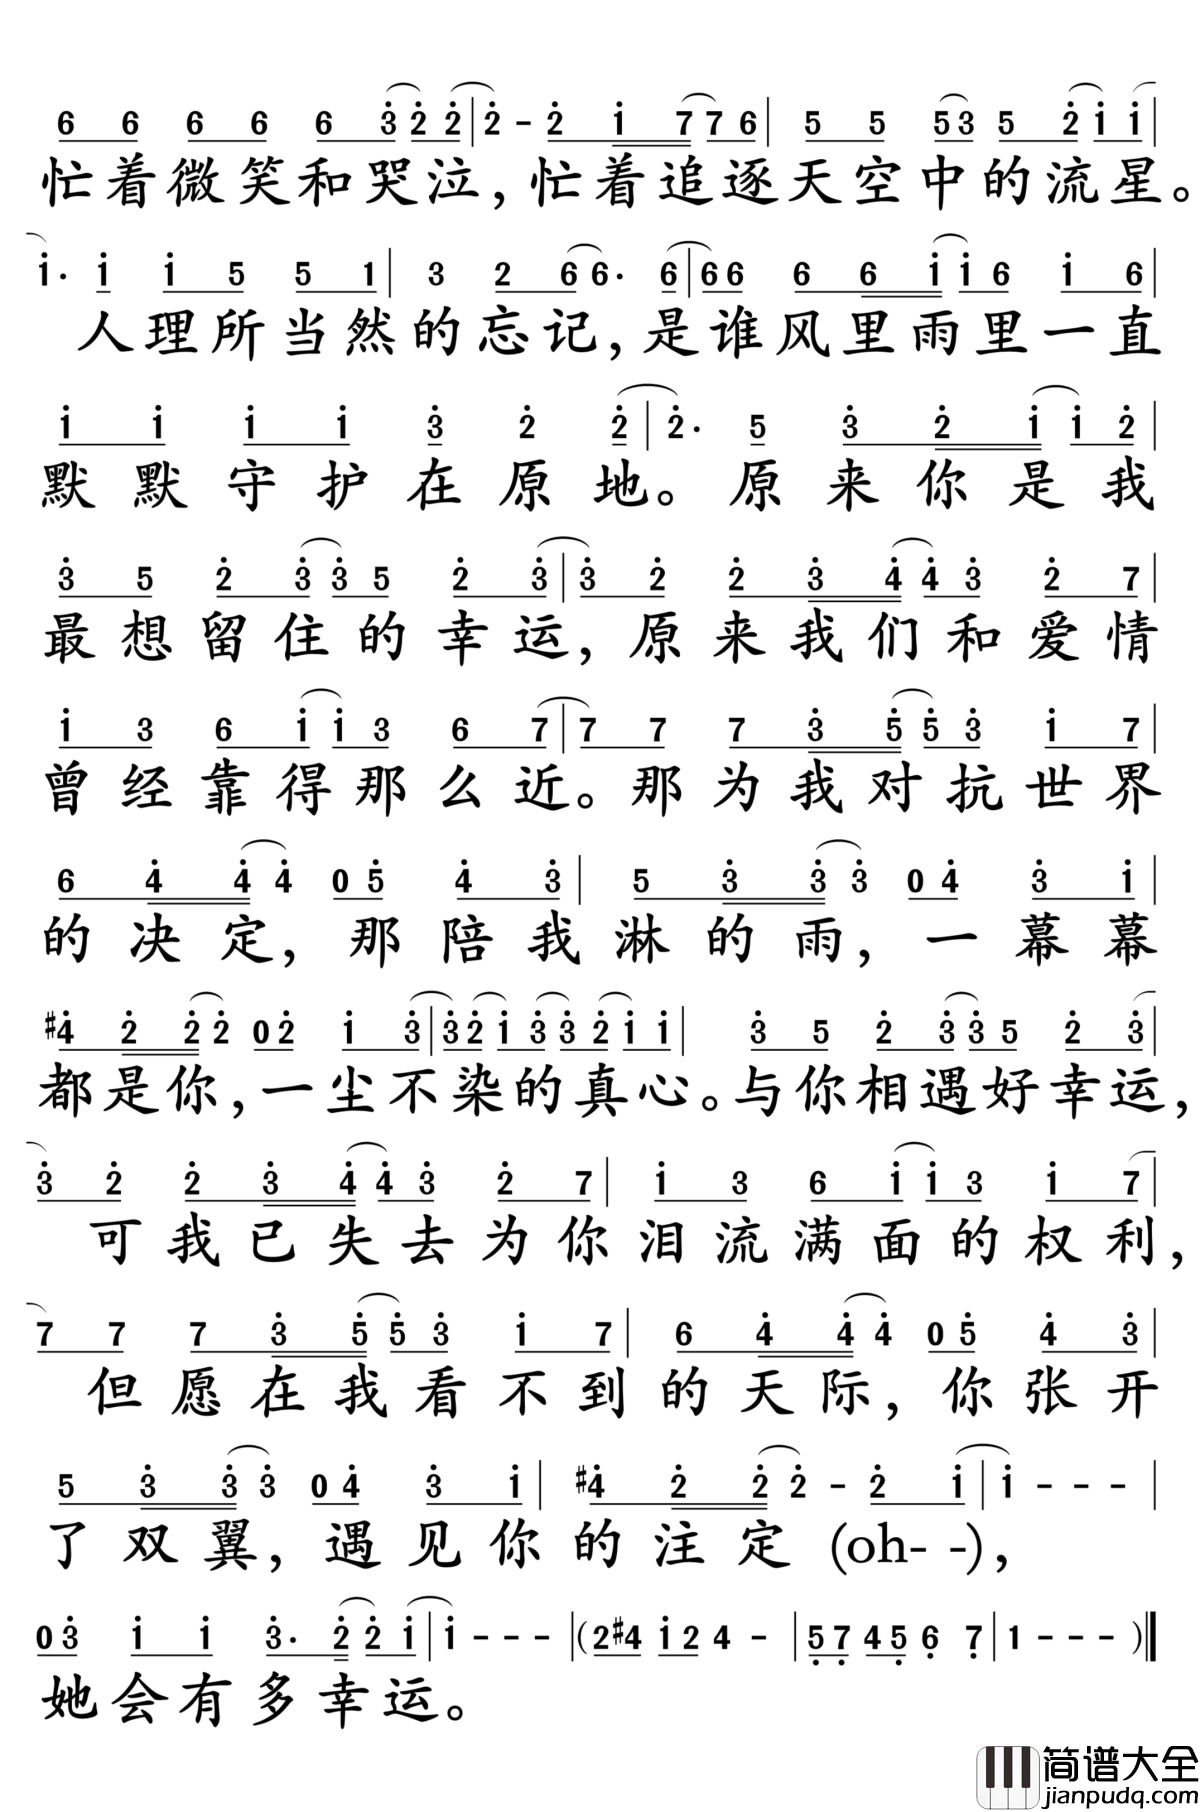 6 6 6 6 6 3 2 2 | 2 - 2 1 7 7 6 | 5 5 5 3 5 2 1 1 |
忙着微笑和哭泣，忙着追逐天空中的流星。
1· 1 1 5 5 1 | 3 2 6 6· 6 | 6 6 6 6 1 1 6 1 6 |
人理所当然的忘记，是谁风里雨里一直
1 1 1 1 3 2 2 | 2· 5 3 2 1 1 2 |
默默守护在原地。原来你是我
3 5 2 3 3 5 2 3 | 3 2 2 3 4 4 3 2 7 |
最想留住的幸运，原来我们和爱情
1 3 6 1 1 3 6 7 | 7 7 7 3 5 5 3 1 7 |
曾经靠得那么近。那为我对抗世界
6 4 4 4 0 5 4 3 | 5 3 3 3 0 4 3 1 |
的决定，那陪我淋的雨，一幕幕
#4 2 2 2 0 2 1 3 | 3 2 1 3 3 2 1 1 | 3 5 2 3 3 5 2 3 |
都是你，一尘不染的真心。与你相遇好幸运，
3 2 2 3 4 4 3 2 7 | 1 3 6 1 1 3 1 7 |
可我已失去为你泪流满面的权利，
7 7 7 3 5 5 3 1 7 | 6 4 4 4 0 5 4 3 |
但愿在我看不到的天际，你张开
5 3 3 3 0 4 3 1 | #4 2 2 2 - 2 1 | 1 - - - |
了双翼，遇见你的注定(oh- -)，
0 3 1 1 3· 2 2 1 | 1 - - - | (2 #4 1 2 4 - | 5 7 4 5 6 7 | 1 - - - )‖
她会有多幸运。
简谱大全
jianpudq.com